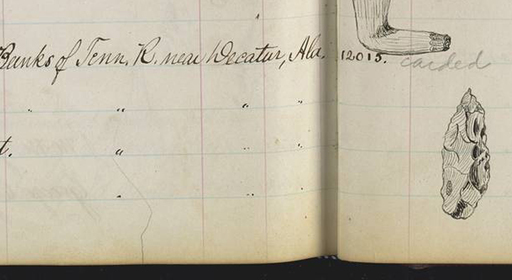 Banks of Tenn. R. near Decatur, Ala.
" " " "
t. " " "
" " "
12015. carded